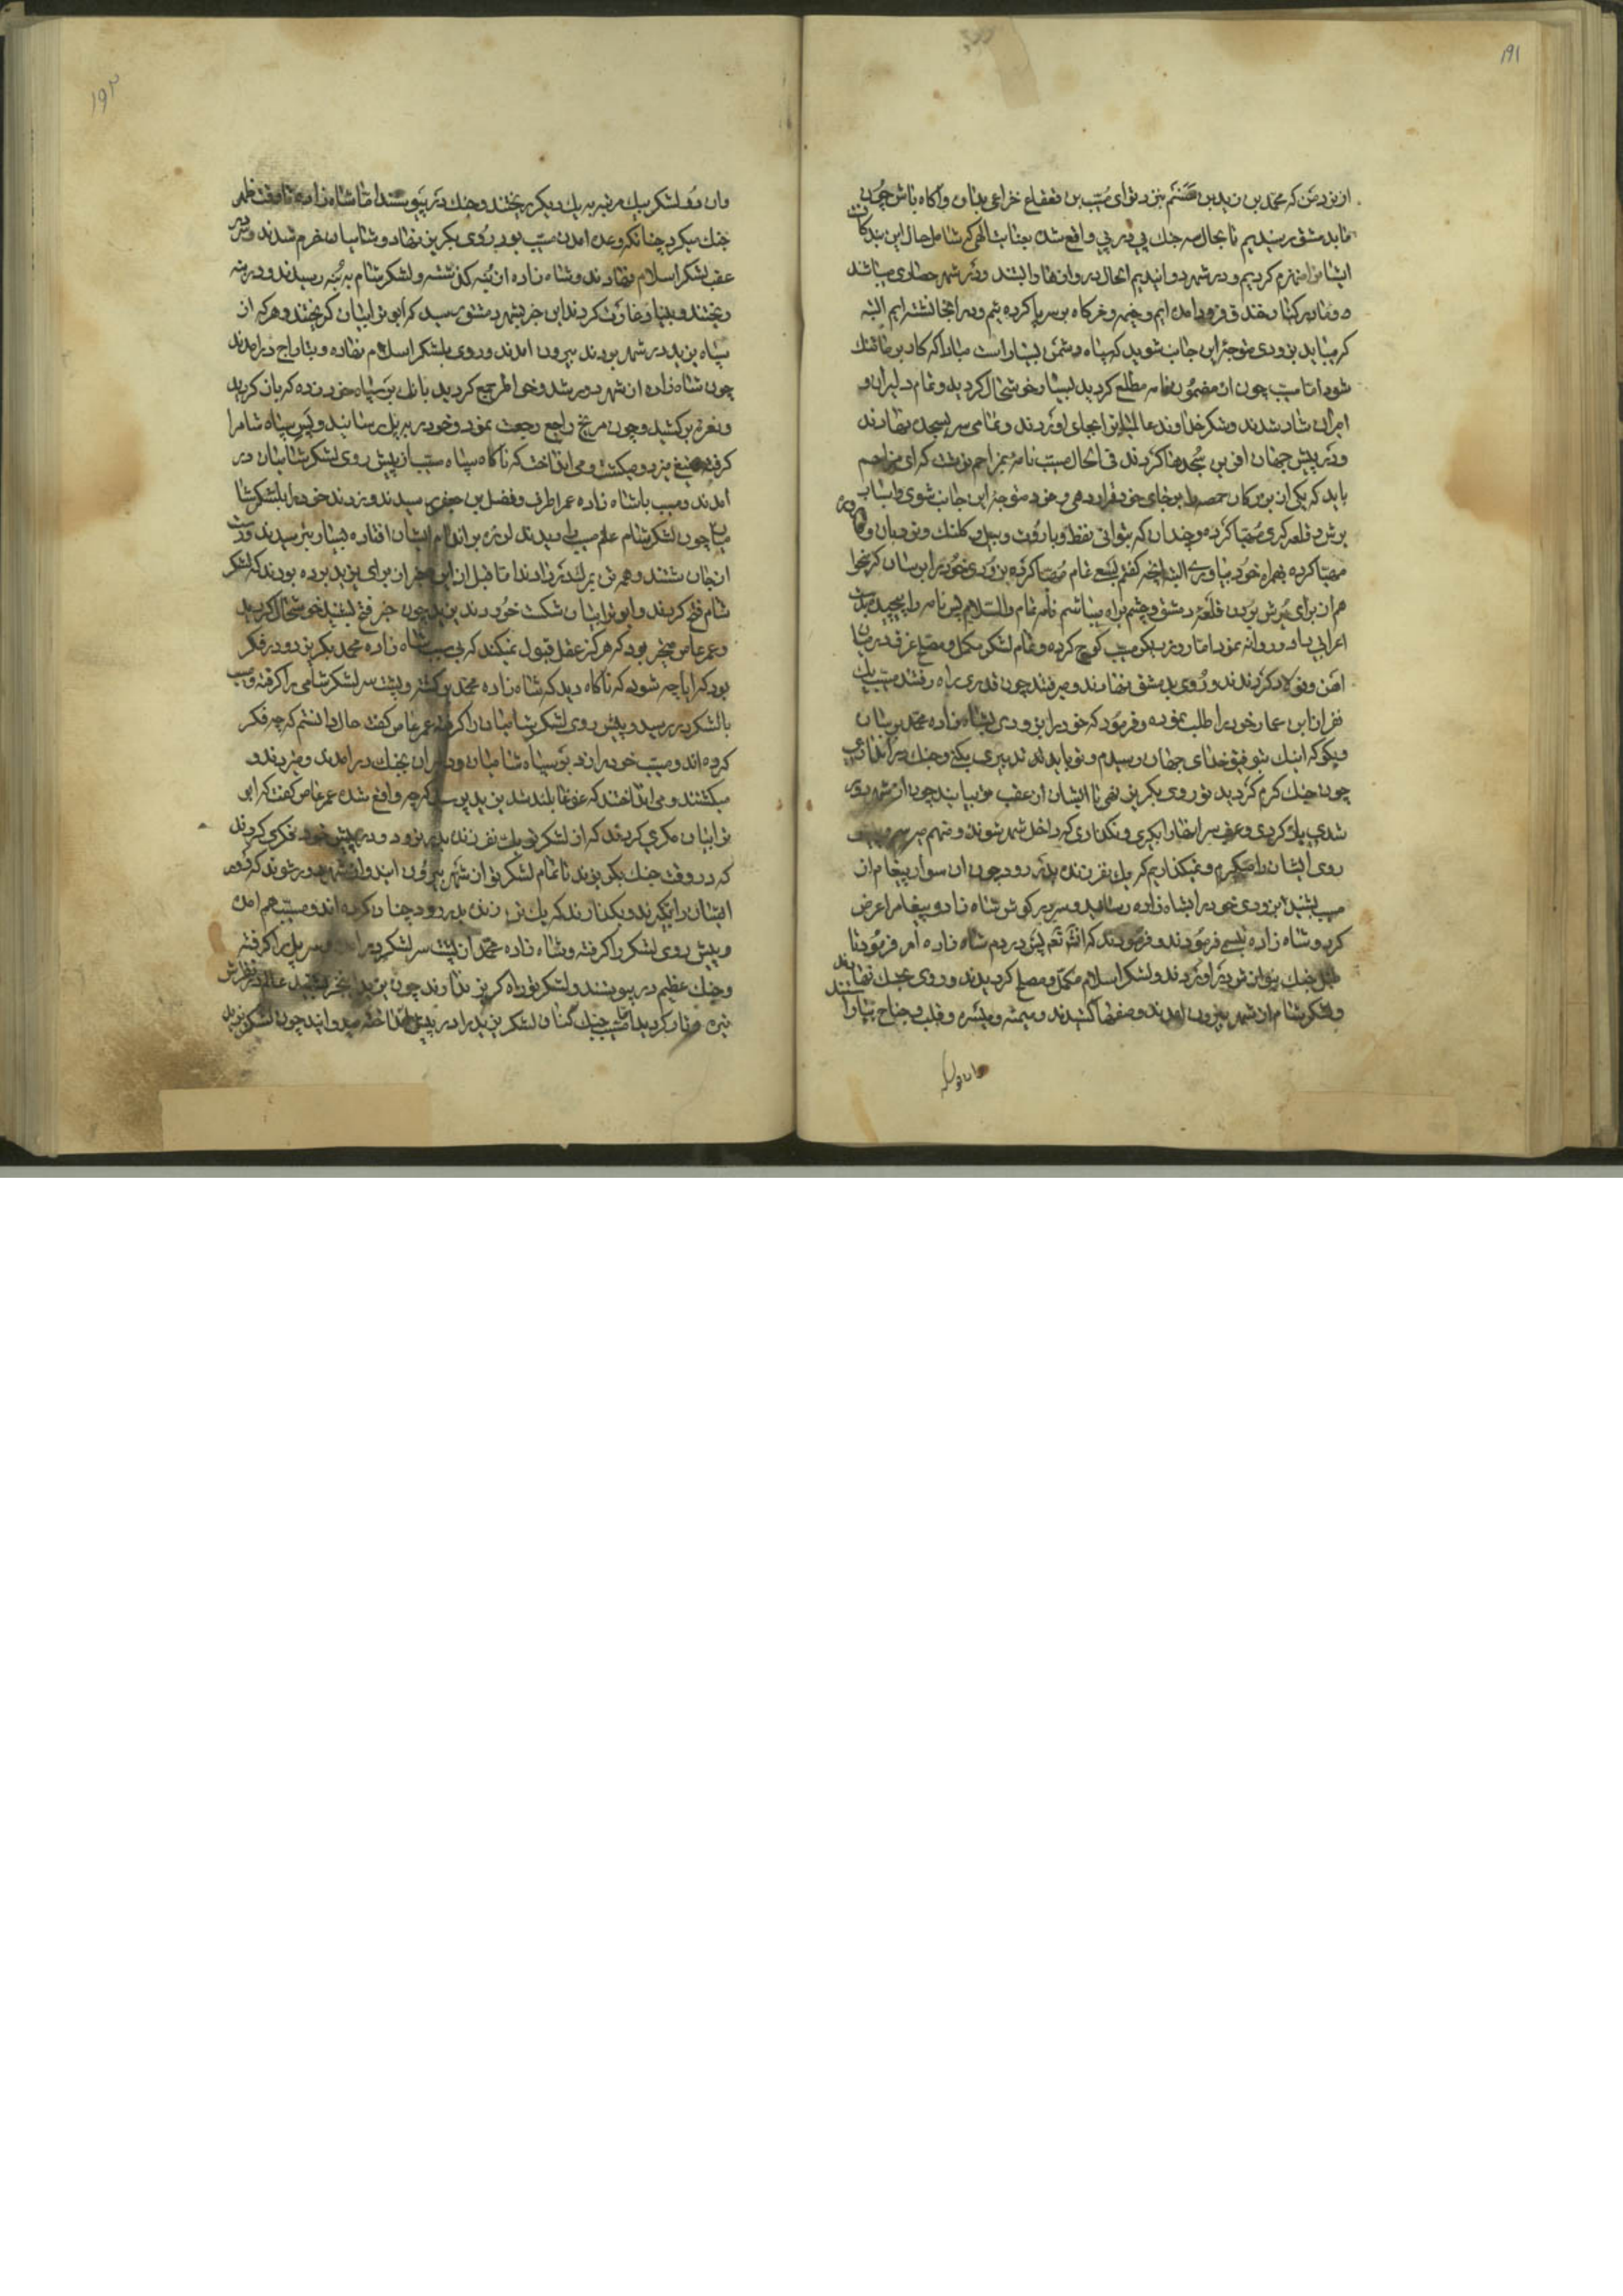 ۱۹۱
از نزد من که محمد بن زید بن نزد توای مسیب بن قعقاع خزاعی بدان و آکاه باش چون
ما بدمشق رسیدیم تا بحال سه جنك پی در پی واقع شده بعنایت الهی که شامل حال این بندکان
ایشانرا منهزم کردیم و در شهر دوانیدیم الحال دروازها را بستند و در شهر حصاری میباشند
و ما در کنار خندق فرود امده ایم و خیمه و خرکاه بر سر پا کرده ایم و در اینجا نشسته ایم البته
که میباید بزودی متوجه این جانب شوید که سپاه دشمن بسیار است مبادا که کار بر ما تنك
شود اما مسیب چون از مضمون نامه مطلع کردید بسیار خوشحال کردید و تمام دلیران و
امیران شاد شدند و شکر خداوند عالمیانرا بجای اوردند و تمامی سر بسجده نهادند
و در پیش جهان افرین سجدها کردند فی الحال مسیب نامه بمزاحم نوشت که ای مزاحم
باید که یکی از بزرکان حمص را بر جای خود قرار دهی و خود متوجه این جانب شوی و اسباب
یرش و قلعه کیری مهیا کرده و چندان که بتوانی نفط و باروت و بیل و کلنك و نردبان و
مهیا کرده همراه خود بیاوری البته انچه کفتم بسیع تمام مهیا کرده بزودی خود را برسان که میخوا
هم از برای یرش بردن قلعه دمشق و چشم براه میباشم نامه تمام والسلام پس نامه را پیچید بدست
اعرابی داد و روانه نمود اما روز دیکر مسیب کوچ کرده و تمام لشکر مکمل و مصلح غرق دریای
اهن و فولاد کردند و روی بدمشق نهادند و میرفتند چون قدری راه رفتند مسیب یك
نفر از ابن عمار خود را طلب نموده و فرمود که خود را بزودی بشاه زاده محمد برسان
و بکو که اینك بتوفیق خدای جهان رسیدم و تو باید که تدبیری بکنی و جنك در اندازی
چون جنك کرم کردید تو روی بکریز نهی تا ایشان از عقب تو بیایند چون از شهر دور
شدی بر کردی و عقب سر انها را بکیری و نکذاری که داخل شهر شوند و منهم میرسم و پیش
روی ایشان را میکیرم و نمیکذاریم که یك نفر زنده بدر رود چون ان سوار پیغام از
مسیب شنید بزودی خود را بشاه زاده رسانید و سر در کوش شاه زاده پیغام را عرض
کرد و شاه زاده تبسم فرمودند و فرمودند که انشاء الله پس در دم شاه زاده امر فرمود تا
طبل جنك بنوازش در اوردند و لشکر اسلام مکمل و مصلح کردیدند و روی بجنك نهادند
و لشکر شام از شهر بیرون امدند و صفها کشیدند و میمنه و میسره و قلب و جناح بیارا
ستند
و ان دو
۱۹۲
وان دو لشکر بیك مرتبه بر یك دیکر ریختند و جنك در پیوستند اما شاه زاده تا وقت ظهر
جنك میکرد چنانکه وعده امدن مسیب بود روی بکریز نهاد و شامیان خرم شدند و سر
عقب لشکر اسلام نهادند و شاه زاده از بنه کذشته و لشکر شام به بنه رسیدند و در بنه
ریختند و بنیاد غارت کردند این خبر بشهر دمشق رسید که ابو ترابیان کریختند و هر که از
سپاه یزید در شهر بودند بیرون امدند و روی بلشکر اسلام نهاده و بتاراج درامدند
چون شاه زاده از شهر دور شد و خواطر جمع کردید بانك بر سپاه خود زده که باز کردید
و نعره بر کشید و چون مریخ راجع رجعت نمود و خود را بر پل رسانید و پس سپاه شام را
کرفته تیغ میزد و میکشت و می انداخت که ناکاه سپاه مسیب از پیش روی لشکر شامیان در
امدند و مسیب با شاه زاده عمر اطرف و فضل بن جعفر رسیدند و زدند خود را بلشکر شا
میان چون لشکر شام علم مسیب را دیدند لرزه بر اندام ایشان افتاده بسیار بترسیدند و دست
از جان شستند و همه تن بمرك در دادند اما قبل از این خبر از برای یزید برده بودند که لشکر
شام فتح کردند و ابو ترابیان شکست خوردند یزید چون خبر فتح شنید خوشحال کردید
و عمر عاص متحیر بود که هر کز عقل قبول نمیکند که بی سبب شاه زاده محمد بکریزد و در فکر
بود که ایا چه شود که ناکاه دید که شاه زاده محمد بر کشته و پشت سر لشکر شامی را کرفته و مسیب
با لشکر در رسید و پیش روی لشکر شامیان را کرفته عمر عاص کفت حال دانستم که چه فکر
کرده اند و مسیب خود را زد بر سپاه شامیان و دلیران بجنك در امدند و میزدند و
میکشتند و می انداختند که غوغا بلند شد یزید پرسید که چه واقع شده عمر عاص کفت که ابو
ترابیان مکری کردند که از لشکر تو یك نفر زنده بدر نرود و در پیش خود فکری کردند
که در وقت جنك بکریزند تا تمام لشکر تو از شهر بیرون ایند و از شهر دور شوند که دور
ایشان را بکیرند و نکذارند که یك تن زنده بدر رود چنان کرده اند و مسیب هم امده
و پیش روی لشکر را کرفته و شاه زاده محمد از پشت سر لشکر در امده و سر پل را کرفته
و جنك عظیم در پیوستند و لشکر تو راه کریز ندارند چون یزید این خبر شنید عالم در نظرش
تیره و تار کردید اما مسیب جنك کنان لشکر یزید را در پیش انداخته میدوانید چون لشکر یزید